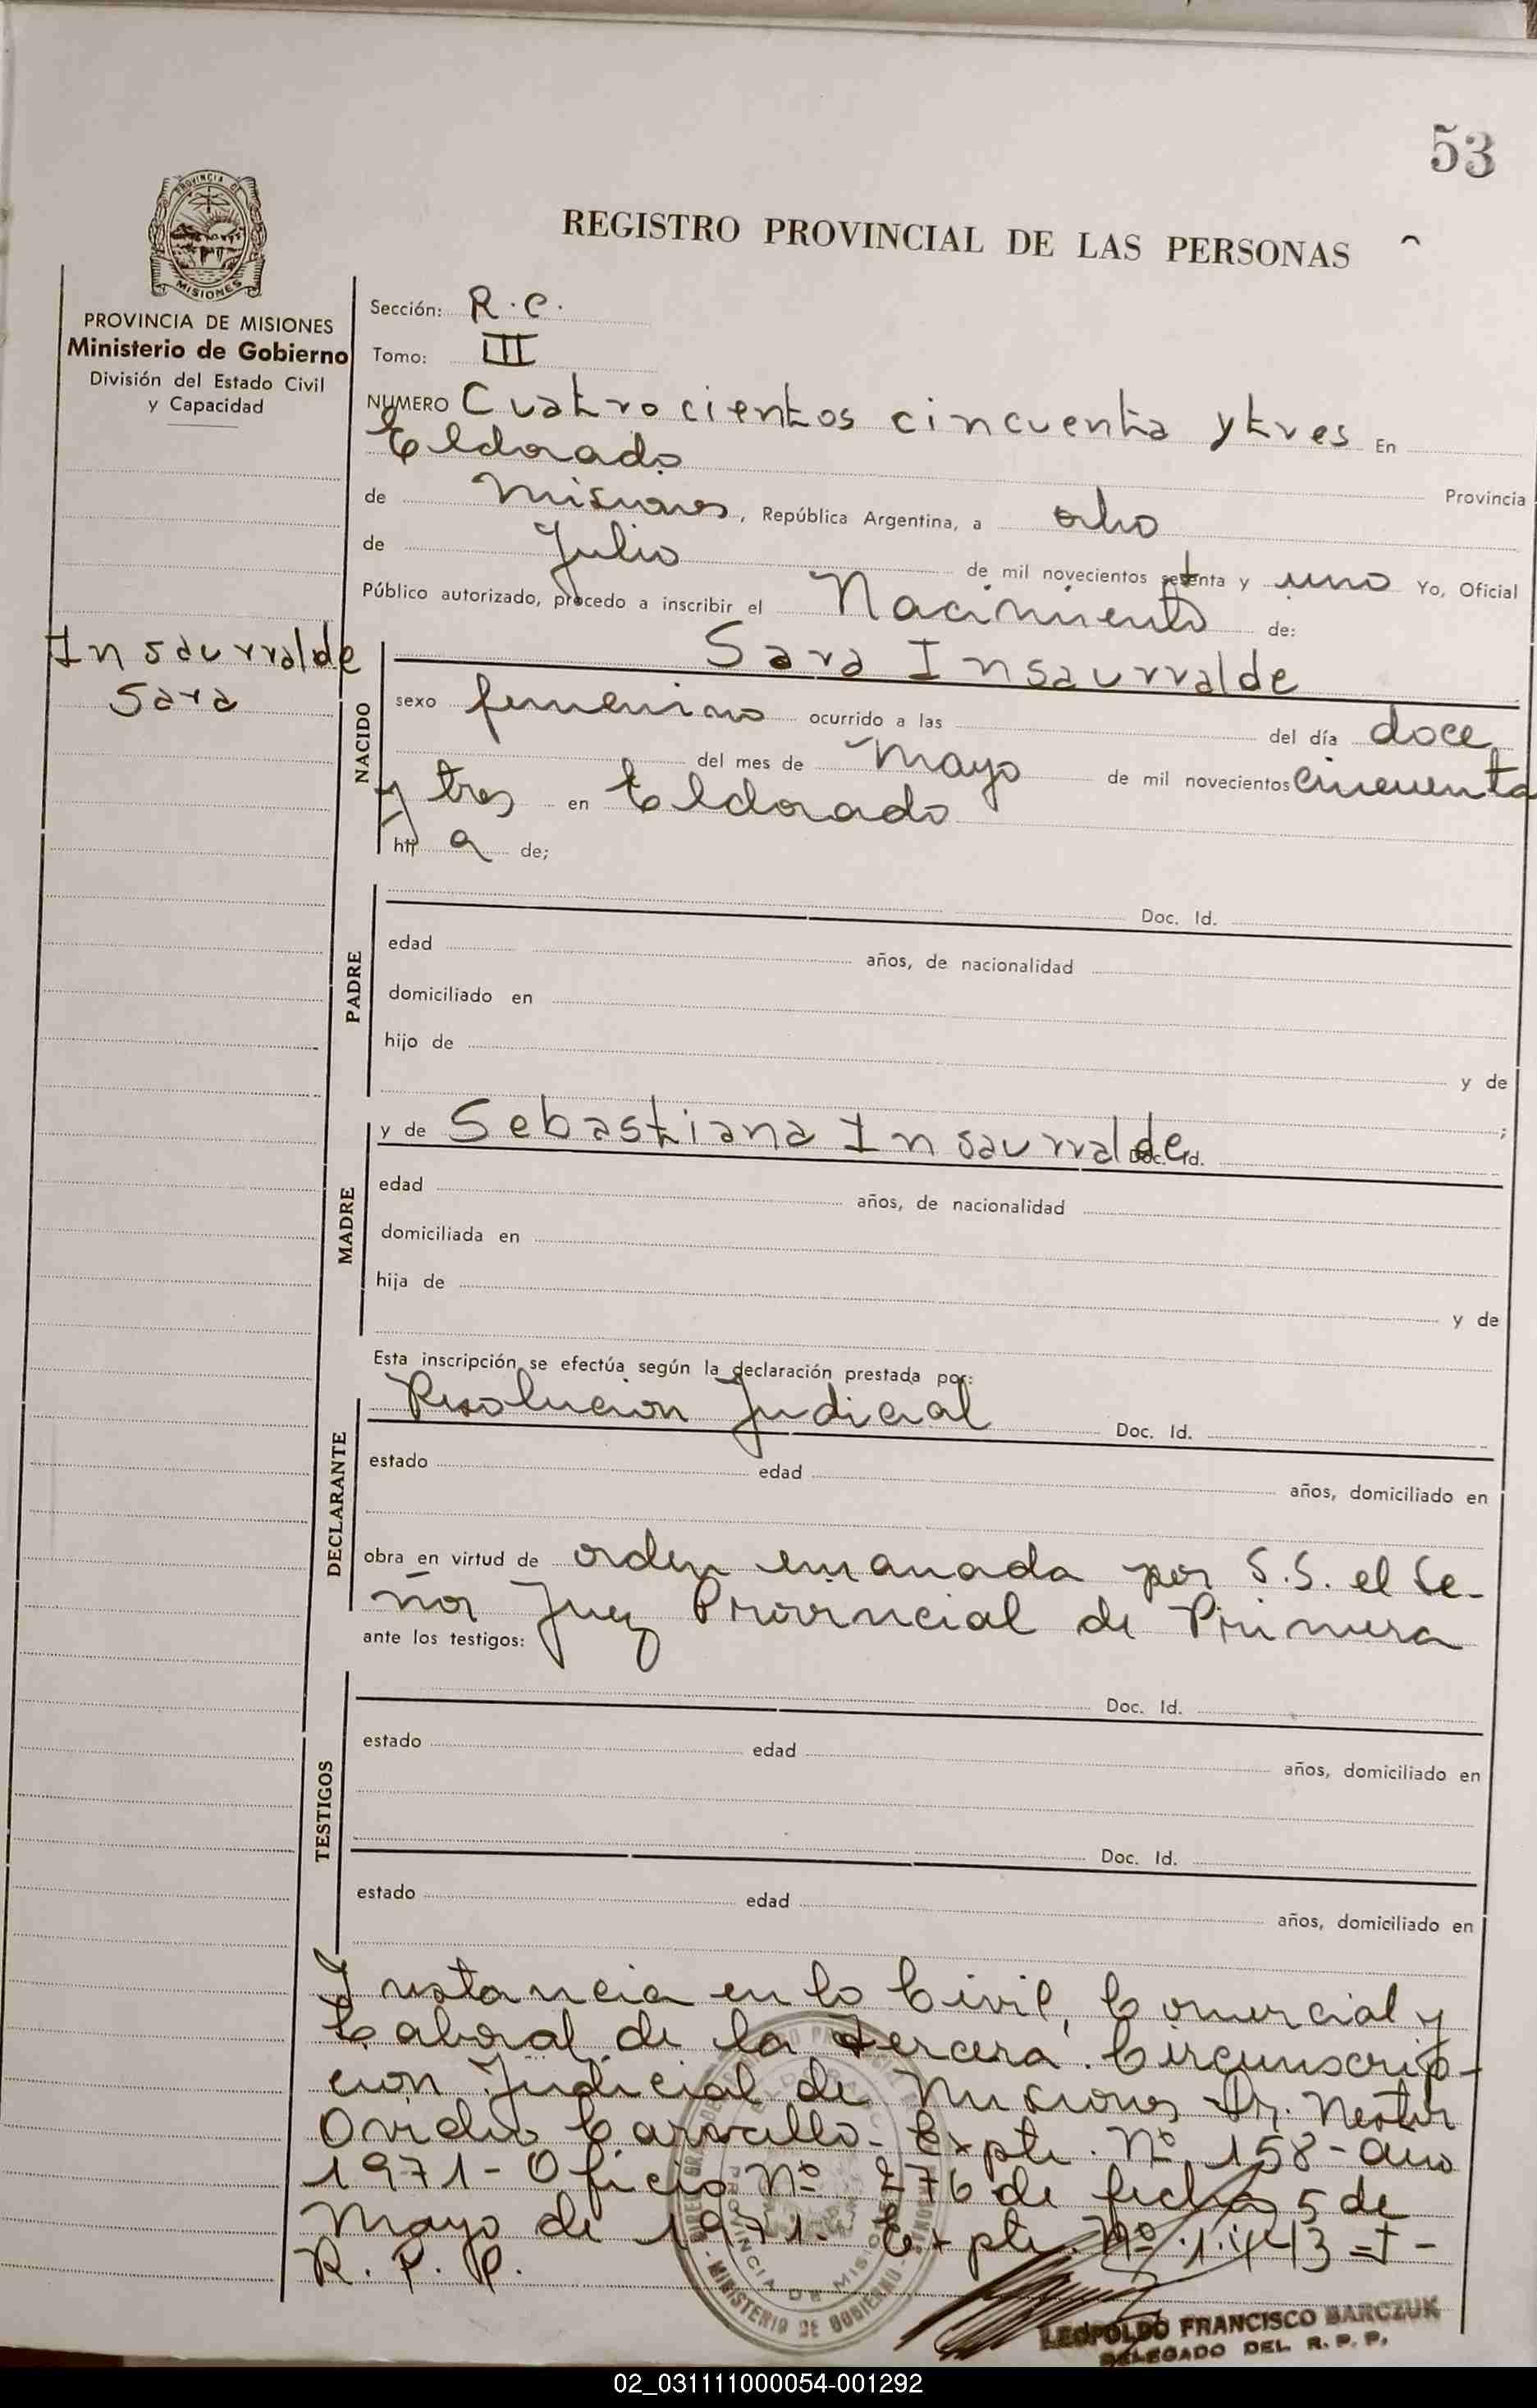 53
PROVINCIA DE MISIONES
REGISTRO PROVINCIAL DE LAS PERSONAS
PROVINCIA DE MISIONES
Ministerio de Gobierno
División del Estado Civil
y Capacidad
Sección: R.C.
Tomo: III
NUMERO Cuatrocientos cincuenta y tres En
Eldorado Provincia
de Misiones, República Argentina, a ocho
de Julio de mil novecientos setenta y uno Yo, Oficial
Público autorizado, procedo a inscribir el Nacimiento de:
Insaurralde
Sara
NACIDO
Sara Insaurralde
sexo femenino ocurrido a las del día doce
del mes de Mayo de mil novecientos cincuenta
y tres en Eldorado
hij a de;
PADRE
Doc. Id.
edad años, de nacionalidad
domiciliado en
hijo de y de
;
MADRE
y de Sebastiana Insaurralde Doc. Id.
edad años, de nacionalidad
domiciliada en
hija de y de
Esta inscripción se efectúa según la declaración prestada por:
DECLARANTE
Resolucion Judicial Doc. Id.
estado edad años, domiciliado en
obra en virtud de orden emanada por S.S. el Se-
ñor Juez Provincial de Primera
ante los testigos:
TESTIGOS
Doc. Id.
estado edad años, domiciliado en
Doc. Id.
estado edad años, domiciliado en
Instancia en lo Civil, Comercial y
Laboral de la Tercera Circunscrip-
cion Judicial de Misiones Dr. Nestor
Ovidio Carvallo - Expte. Nº 158 - año
1971 - Oficio Nº 276 de fecha 5 de
Mayo de 1971. Expte. Nº 1.443 = I -
R. P. P.
PROVINCIA DE MISIONES
MINISTERIO DE GOBIERNO
LEOPOLDO FRANCISCO BARCZUK
DELEGADO DEL R. P. P.
02_031111000054-001292